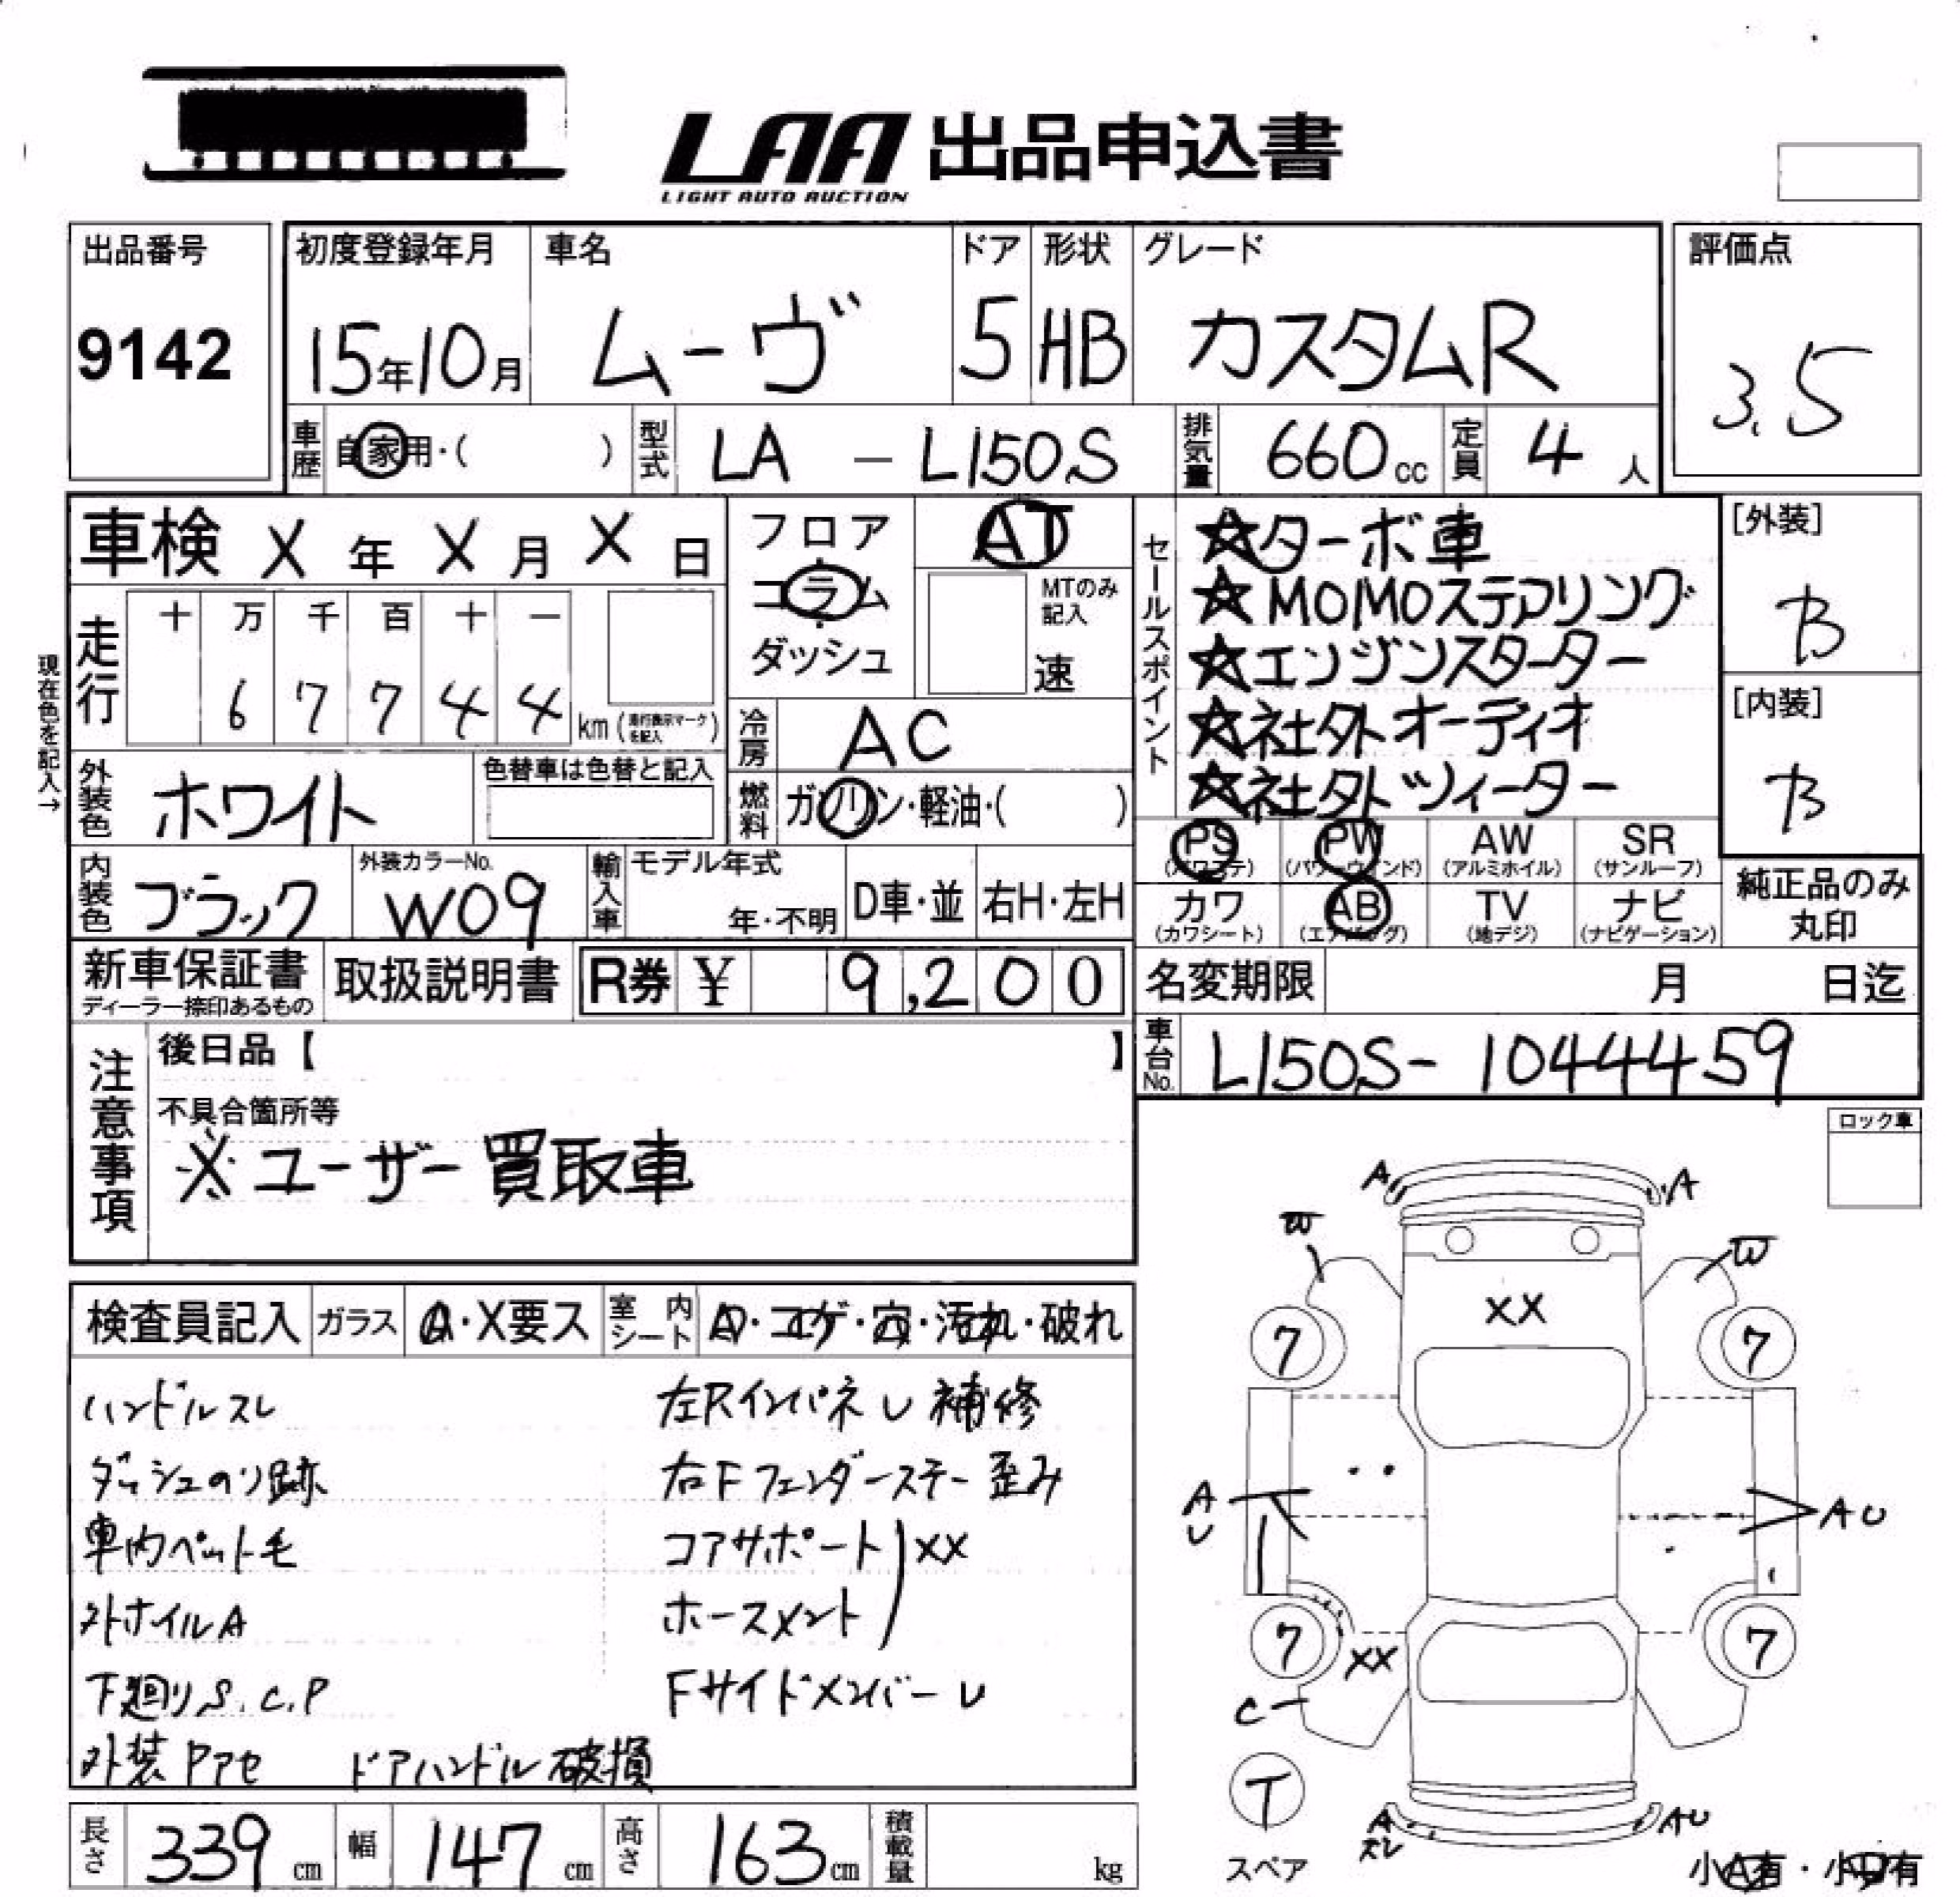 LAA 出品申込書
LIGHT AUTO AUCTION
出品番号
9142
初度登録年月
15年10月
車名
ムーヴ
ドア
5
形状
HB
グレード
カスタムR
評価点
3.5
車歴 自家用・( )
型式 LA - L150S
排気量 660cc
定員 4人
車検 X年X月X日
走行
十 万 千 百 十 一
6 7 7 4 4 km (走行表示マークを記入)
現在色を記入→
外装色 ホワイト
色替車は色替と記入
内装色 ブラック
外装カラーNo.
W09
フロア
コラム
ダッシュ
AT
MTのみ記入
速
冷房 AC
燃料 ガソリン・軽油・( )
輸入車 モデル年式
年・不明
D車・並
右H・左H
セールスポイント
☆ターボ車
☆MOMOステアリング
☆エンジンスターター
☆社外オーディオ
☆社外ツィーター
[外装]
B
[内装]
B
PS (パワステ)
PW (パワーウィンド)
AW (アルミホイル)
SR (サンルーフ)
カワ (カワシート)
AB (エアバッグ)
TV (地デジ)
ナビ (ナビゲーション)
純正品のみ
丸印
新車保証書
ディーラー捺印あるもの
取扱説明書
R券 ¥ 9,200
名変期限 月 日迄
車台No. L150S-1044459
注意事項
後日品【 】
不具合箇所等
※ユーザー買取車
ロック車
検査員記入
ガラス A・X要ス
室内シート A・コゲ・穴・汚れ・破れ
ハンドルスレ
ダッシュのり跡
車内ペット毛
外ホイルA
下廻りS.C.P
外装Pアセ ドアハンドル破損
左RインパネU補修
右Fフェンダーステー歪み
コアサポート
ホースメント
XX
FサイドメンバーU
A
A
W
W
XX
7
7
A
U
AU
7
7
XX
C
T
スペア
A
スレ
AU
小A有・小U有
長さ 339cm
幅 147cm
高さ 163cm
積載量 kg